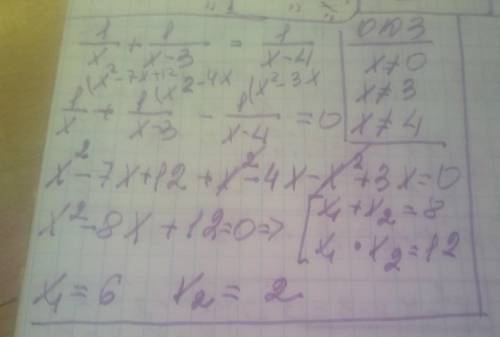 1/x + 1/x-3 = 1/x-4
ОДЗ
x≠0
x≠3
x≠4
1(x²-7x+12/x + 1(x²-4x/x-3 - 1(x²-3x/x-4 = 0
x²-7x+12+x²-4x-x²+3x=0
x²-8x+12=0=> [x₁+x₂=8
x₁·x₂=12
x₁=6 x₂=2